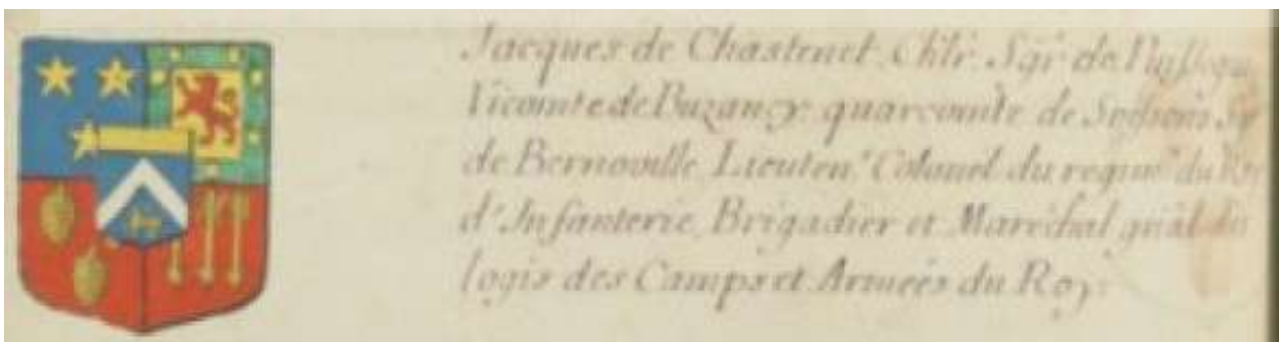 Jacques de Chastenet, Chlr. Sgr. de
Vicomte de Buzancy: quarcomte de Soissons Sr
de Bernoville, Lieuten.t Colonel du regim.t du Roy
d'Infanterie, Brigadier et Maréchal gnāl des
logis des Camps et Armées du Roy: